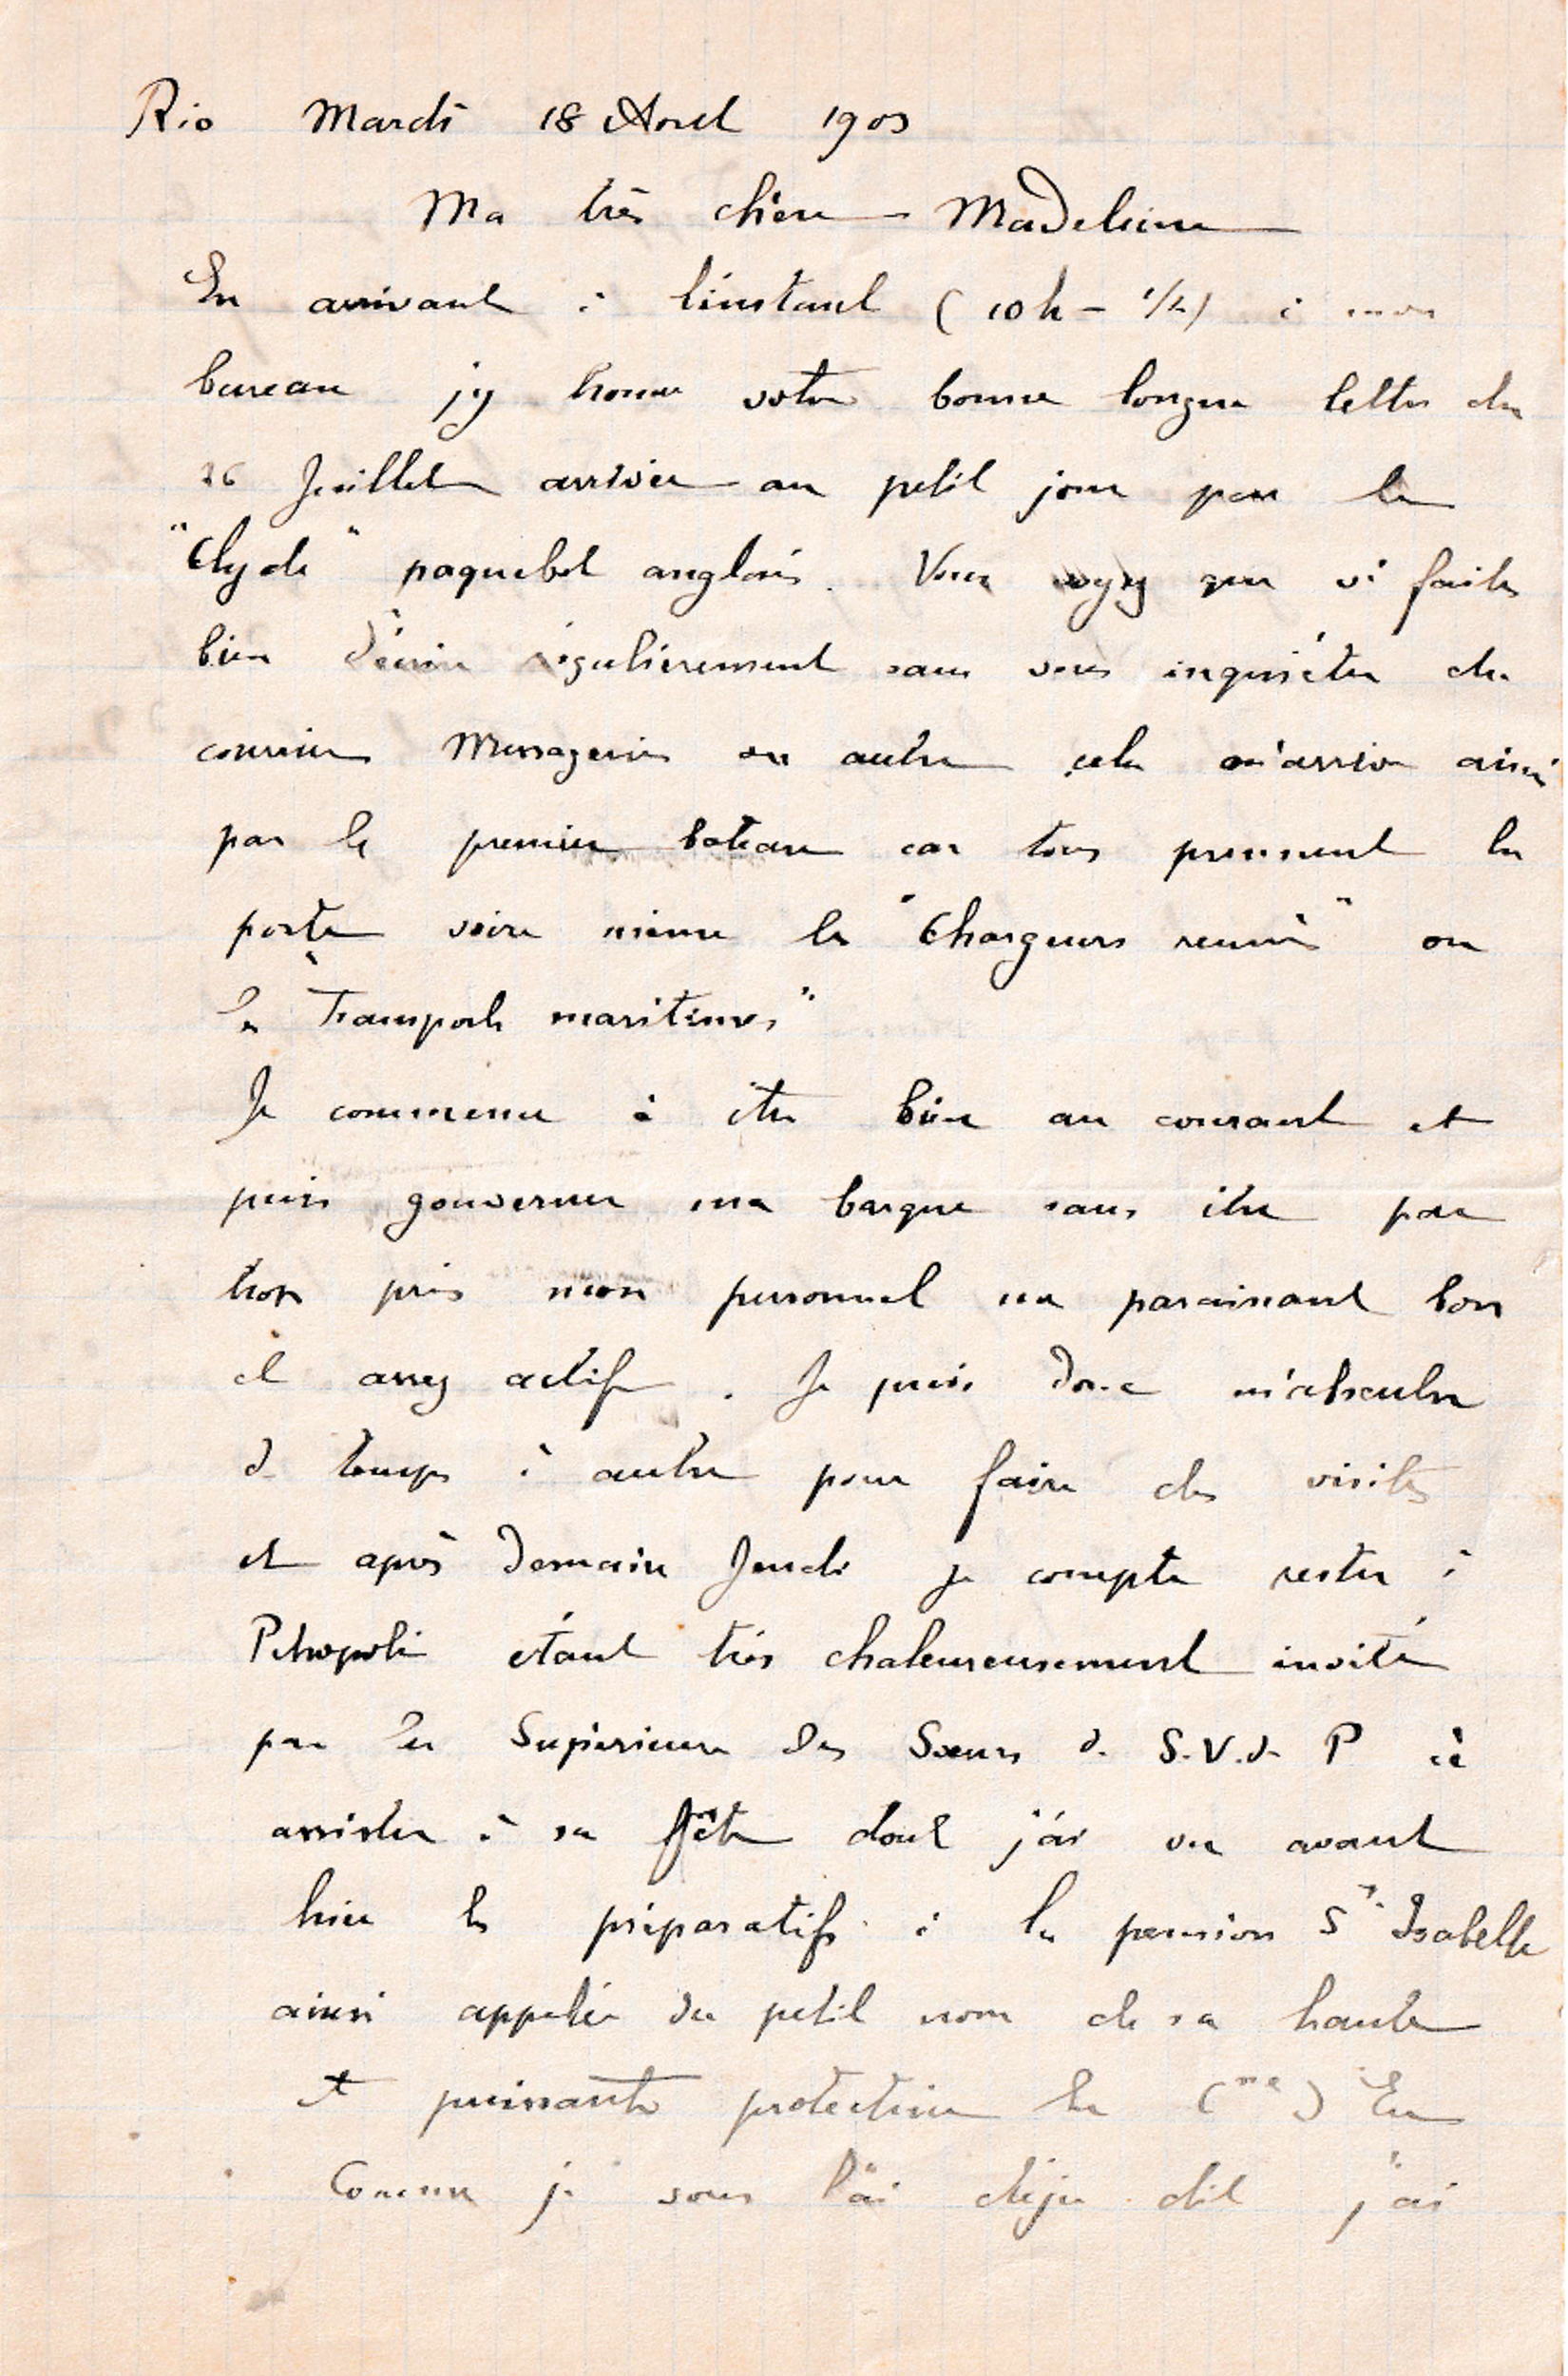 Rio Mardi 18 Aout 1903
Ma très chère Madeleine
En arrivant à l'instant (10h - 1/2) à mon
bureau j'y trouve votre bonne longue lettre du
26 Juillet arrivée au petit jour par le
"Clyde" paquebot anglais. Vous voyez que vs faites
bien d'écrire régulièrement sans vous inquiéter du
courrier Messageries ou autre cela m'arrive ainsi
par le premier bateau car tous prennent la
poste voire même les "Chargeurs réunis" ou
les "Transports maritimes"
Je commence à être bien au courant et
puis gouverner ma barque sans être par
trop pris mon personnel me paraissant bon
et assez actif. Je puis donc m'absenter
de temps à autre pour faire des visites
et après demain Jeudi je compte rester à
Petropolis étant très chaleureusement invité
par la Supérieure des Sœurs de S.V.d. P à
assister à sa fête dont j'ai vu avant
hier les préparatifs à la pension Ste Isabelle
ainsi appelée du petit nom de sa haute
et puissante protectrice la Ctesse d'Eu
Comme je vous l'ai déjà dit j'ai